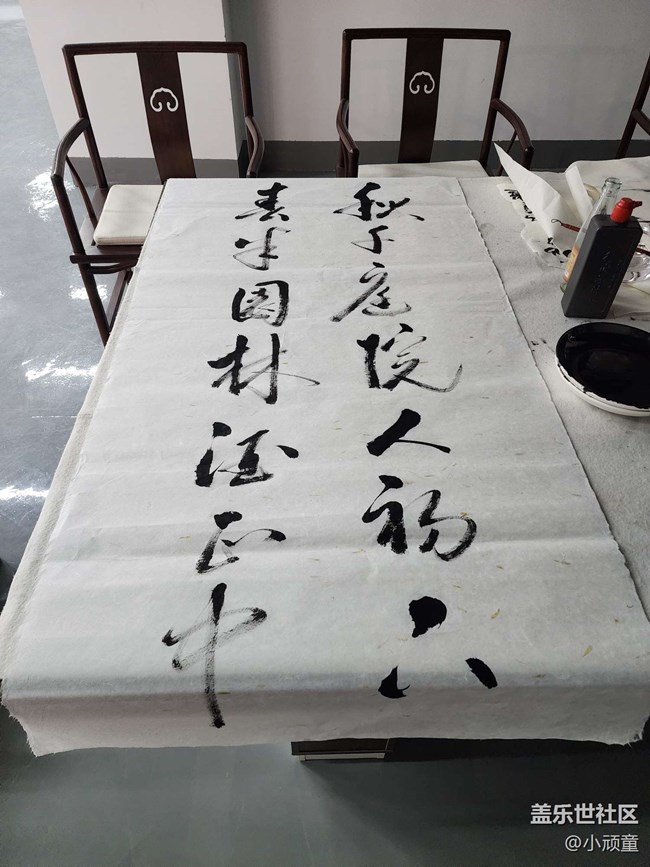 秋千庭院人初下
春半园林酒正中
盖乐世社区
@小顽童